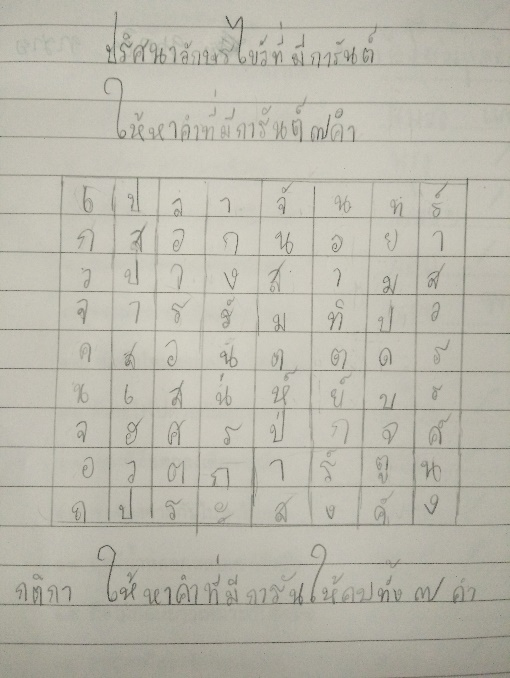 ปริศนาอักษรไขว้ที่มีการันต์
ให้หาคำที่มีการันต์ ๗ คำ
เ ป ล า จั น ท ร์
ก ส อ ก น อ ย า
ว ป า ง ส า ม ส
จ า ร ร์ ม ทิ ป ว
ค ส อ น ต ต ด ร
น เ ส น่ ห์ ย์ บ ร
จ ฮ ศ ร ป ก จ ค์
อ ว ต ก า ร์ ตู น
ถ ป ร ะ ส ง ค์ ง
กติกา ให้หาคำที่มีการันให้ครบทั้ง ๗ คำ